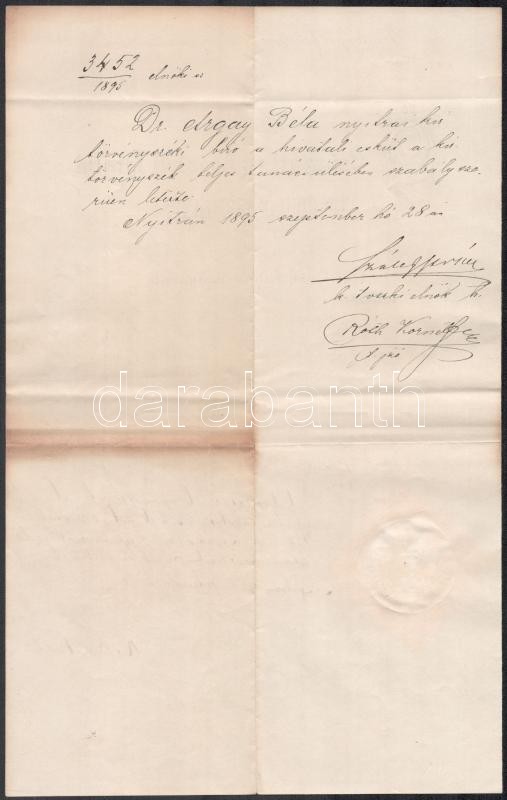 3452
1895 elnöki sz
Dr. Argay Béla nyitrai kir
törvényszéki biró a hivatali esküt a kir
törvényszék teljes tanácsülésében szabálysze-
rüen letette.
Nyitrán 1895 szeptember hó 28 án
k. tvszki elnök h.
Róth Kornél
t. jző
darabanth